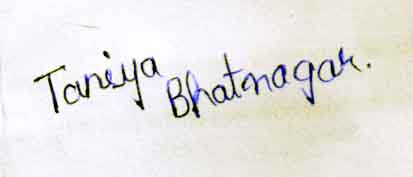 Taniya Bhatnagar.